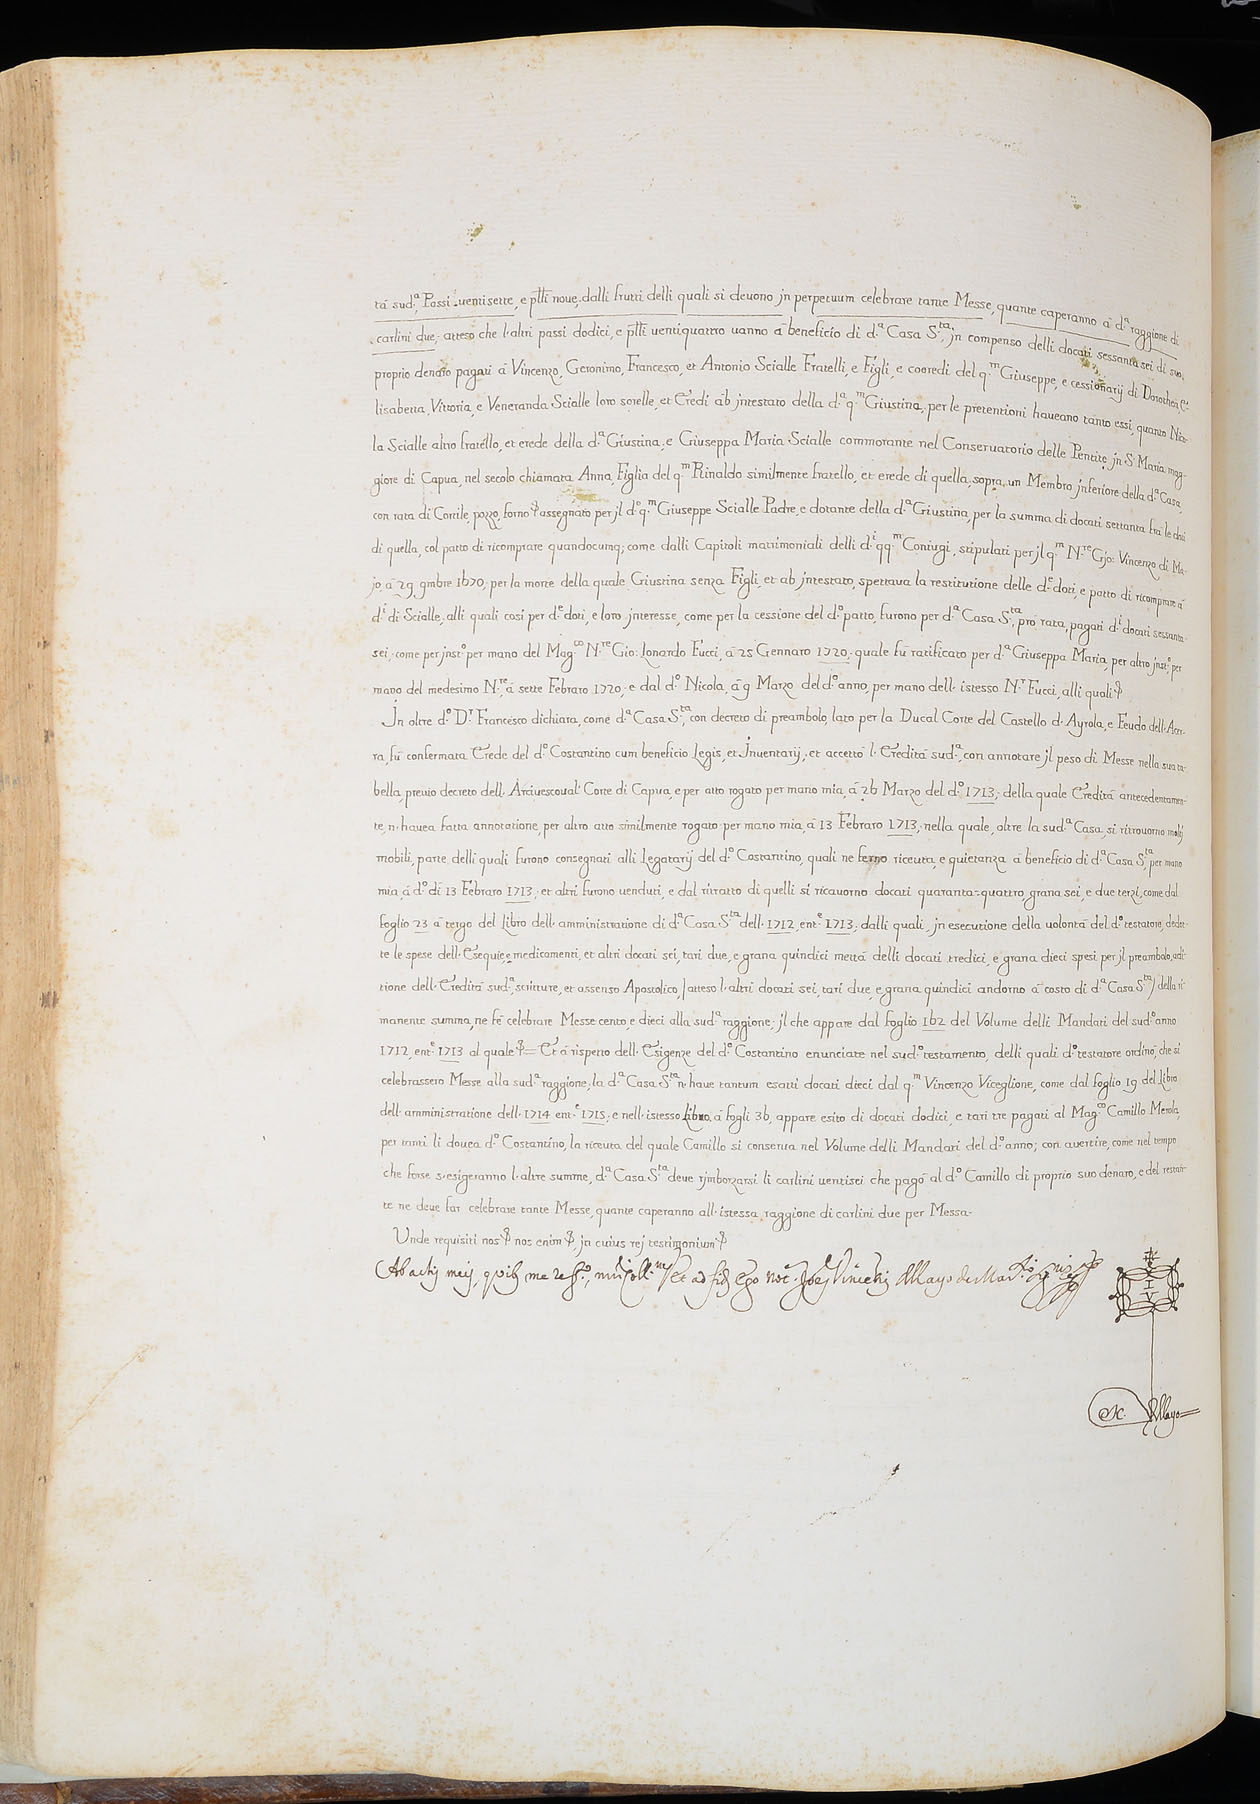 tà sud.ª, Passi uentisette, e p̃lli noue, dalli frutti delli quali si deuono jn perpetuum celebrare tante Messe, quante caperanno à d.ª raggione di
carlini due; atteso che l'altri passi dodici, e p̃lli uentiquattro uanno à beneficio di d.ª Casa S.ta, jn compenso delli docati sessanta sei di suo
proprio denaro pagati à Vincenzo, Geronimo, Francesco, et Antonio Scialle Fratelli, e Figli, e coeredi del q.m Giuseppe, e cessionarij di Dorothea, E-
lisabetta, Vittoria, e Veneranda Scialle loro sorelle, et Eredi ab jntestato della d.ª q.m Giustina, per le pretentioni haueano tanto essi, quanto Nico-
la Scialle altro fratello, et erede della d.ª Giustina, e Giuseppa Maria Scialle commorante nel Conseruatorio delle Pentite jn S. Maria mag-
giore di Capua, nel secolo chiamata Anna, Figlia del q.m Rinaldo similmente fratello, et erede di quella, sopra un Membro jnferiore della d.ª Casa,
con rata di Cortile, pozzo, forno assegnato per jl d.º q.m Giuseppe Scialle Padre, e dotante della d.ª Giustina, per la summa di docati settanta fra le doti
di quella, col patto di ricomprare quandocumq; come dalli Capitoli matrimoniali delli d.i qq.m Coniugi, stipulati per jl q.m N.re Gio: Vincenzo di Ma-
jo, à 29 9mbre 1670; per la morte della quale Giustina senza Figli, et ab jntestato, spettaua la restitutione delle d.e doti, e patto di ricomprare à
d.i di Scialle, alli quali così per d.e doti, e loro jnteresse, come per la cessione del d.º patto, furono per d.ª Casa S.ta, pro rata, pagati d.i docati sessanta
sei, come per jnst.º per mano del Mag.co N.re Gio: Lonardo Fucci, à 25 Gennaro 1720; quale fù ratificato per d.ª Giuseppa Maria, per altro jnst.º per
mano del medesimo N.re, à sette Febraro 1720; e dal d.º Nicola, à 9 Marzo del d.º anno, per mano dell'istesso N.r Fucci, alli quali
Jn oltre d.º D.r Francesco dichiara, come d.ª Casa S.ta, con decreto di preambolo, lato per la Ducal Corte del Castello d'Ayrola, e Feudo dell'Acer-
ra, fù confermata Erede del d.º Costantino cum beneficio Legis, et Jnuentarij, et accettò l'Eredità sud.ª, con annotare jl peso di Messe nella sua ta-
bella, preuio decreto dell'Arciuescoual Corte di Capua, e per atto rogato per mano mia, à 26 Marzo del d.º 1713; della quale Eredità antecedentamen-
te, n'hauea fatta annotatione, per altro atto similmente rogato per mano mia, à 13 Febraro 1713; nella quale, oltre la sud.ª Casa, si ritrouorno molti
mobili, parte delli quali furono consegnati alli Legatarij del d.º Costantino, quali ne ferno riceuta, e quietanza à beneficio di d.ª Casa S.ta per mano
mia, à d.º dì 13 Febraro 1713; et altri furono uenduti, e dal ritratto di quelli si ricauorno docati quaranta=quattro, grana sei, e due terzi, come dal
foglio 23 à tergo del Libro dell'amministratione di d.ª Casa S.ta dell'1712, ent.e 1713; dalli quali, jn esecutione della uolontà del d.º testatore, dedot-
te le spese dell'Esequie, e medicamenti, et altri docati sei, tarì due, e grana quindici mettà delli docati tredici, e grana dieci spesi per jl preambolo, adi-
tione dell'Eredità sud.ª, scritture, et assenso Apostolico, (atteso l'altri docati sei, tarì due, e grana quindici andorno à costo di d.ª Casa S.ta) della ri-
manente summa, ne fè celebrare Messe cento, e dieci alla sud.ª raggione; jl che appare dal foglio 162 del Volume delli Mandati del sud.º anno
1712, ent.e 1713 al quale = Et à rispetto dell'Esigenze del d.º Costantino enunciate nel sud.º testamento, delli quali d.º testatore ordinò, che si
celebrassero Messe alla sud.ª raggione; la d.ª Casa S.ta n'haue tantum esatti docati dieci dal q.m Vincenzo Viceglione, come dal foglio 19 del Libro
dell'amministratione dell'1714 ent.e 1715; e nell'istesso Libro, à fogli 36, appare esito di docati dodici, e tarì tre pagati al Mag.co Camillo Merola,
per tanti li douea d.º Costantino, la riceuta del quale Camillo si conserua nel Volume delli Mandati del d.º anno; con auertire, come nel tempo
che forse s'esigeranno l'altre summe, d.ª Casa S.ta deue rjmborzarsi li carlini uentisei che pagò al d.º Camillo di proprio suo denaro, e del restan-
te ne deue far celebrare tante Messe, quante caperanno all'istessa raggione di carlini due per Messa.
Unde requisiti nos nos enim, jn cuius rej testimonium
Ab actis meis, quibus me ad fidem Ego Not.
N. Mayo